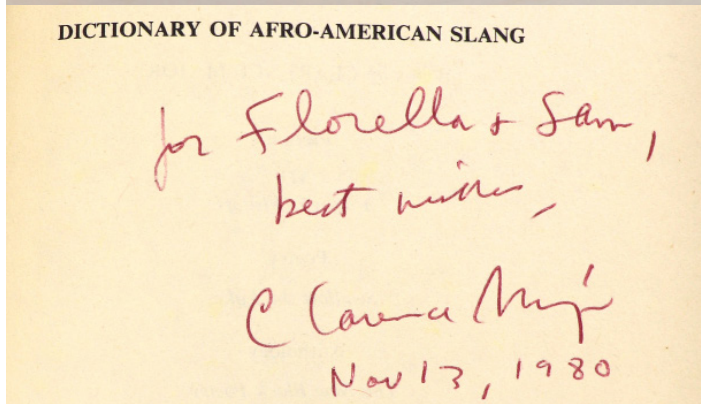 DICTIONARY OF AFRO-AMERICAN SLANG
for Florella & Sam,
best wishes,
Clarence Major
Nov 13, 1980